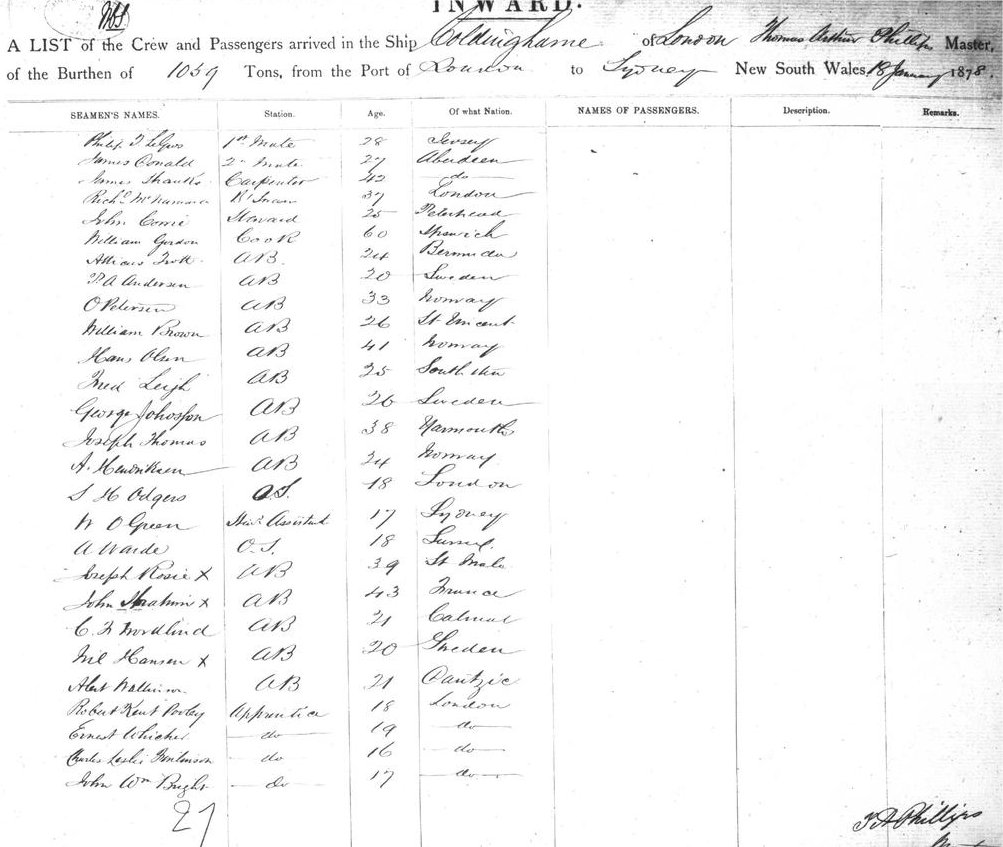 INWARD.
A LIST of the Crew and Passengers arrived in the Ship Coldinghame of London Thomas Arthur Phillips Master,
of the Burthen of 1059 Tons, from the Port of London to Sydney New South Wales, 18 January 1878.
SEAMEN'S NAMES. Station. Age. Of what Nation. NAMES OF PASSENGERS. Description. Remarks.
1st Mate 28 Jersey
James Donald 2nd Mate 27 Aberdeen
James Shanks Carpenter 42 do
Richd McNamara 37 London
John Corrie Steward 25 Peterhead
William Gordon Cook 60 Ipswich
Trott AB. 24 Bermuda
Andersen AB 20 Sweden
O Petersen AB 33 Norway
William Brown AB 26 St Vincent
Hans Olsen AB 41 Norway
Fred Leigh AB 25 South
George AB 26 Sweden
Joseph Thomas AB 38 Yarmouth
A. Hendriksen AB 24 Norway
S H Odgers O.S. 18 London
W O Green Stewd Assistant 17 Sydney
A Warde O.S. 18
Joseph Rosie x AB 39 St Malo
John x AB 43 France
C. F Nordlind AB 21 Calmar
Hansen x AB 20 Sweden
AB 21 Dantzic
Robert Kent Apprentice 18 London
Ernest Whicher do 19 do
Charles Leslie Tomlinson do 16 do
John Wm Bright do 17 do
27
T A Phillips